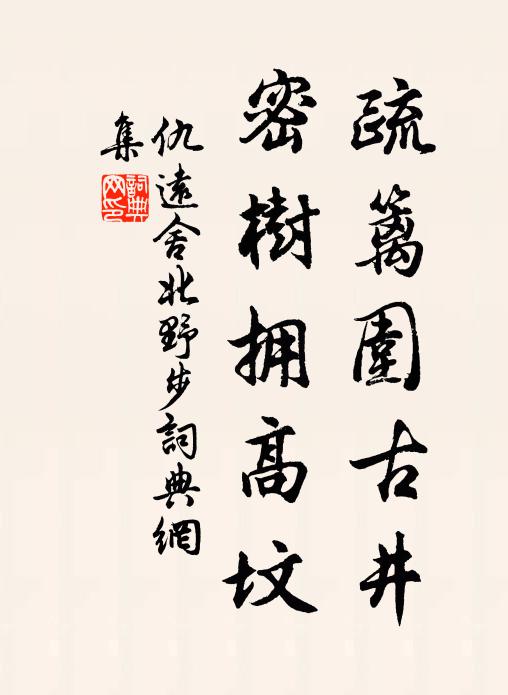 疏篱圍古井
密樹拥高坟
仇遠舍北野步詞典網
集
詞典網印